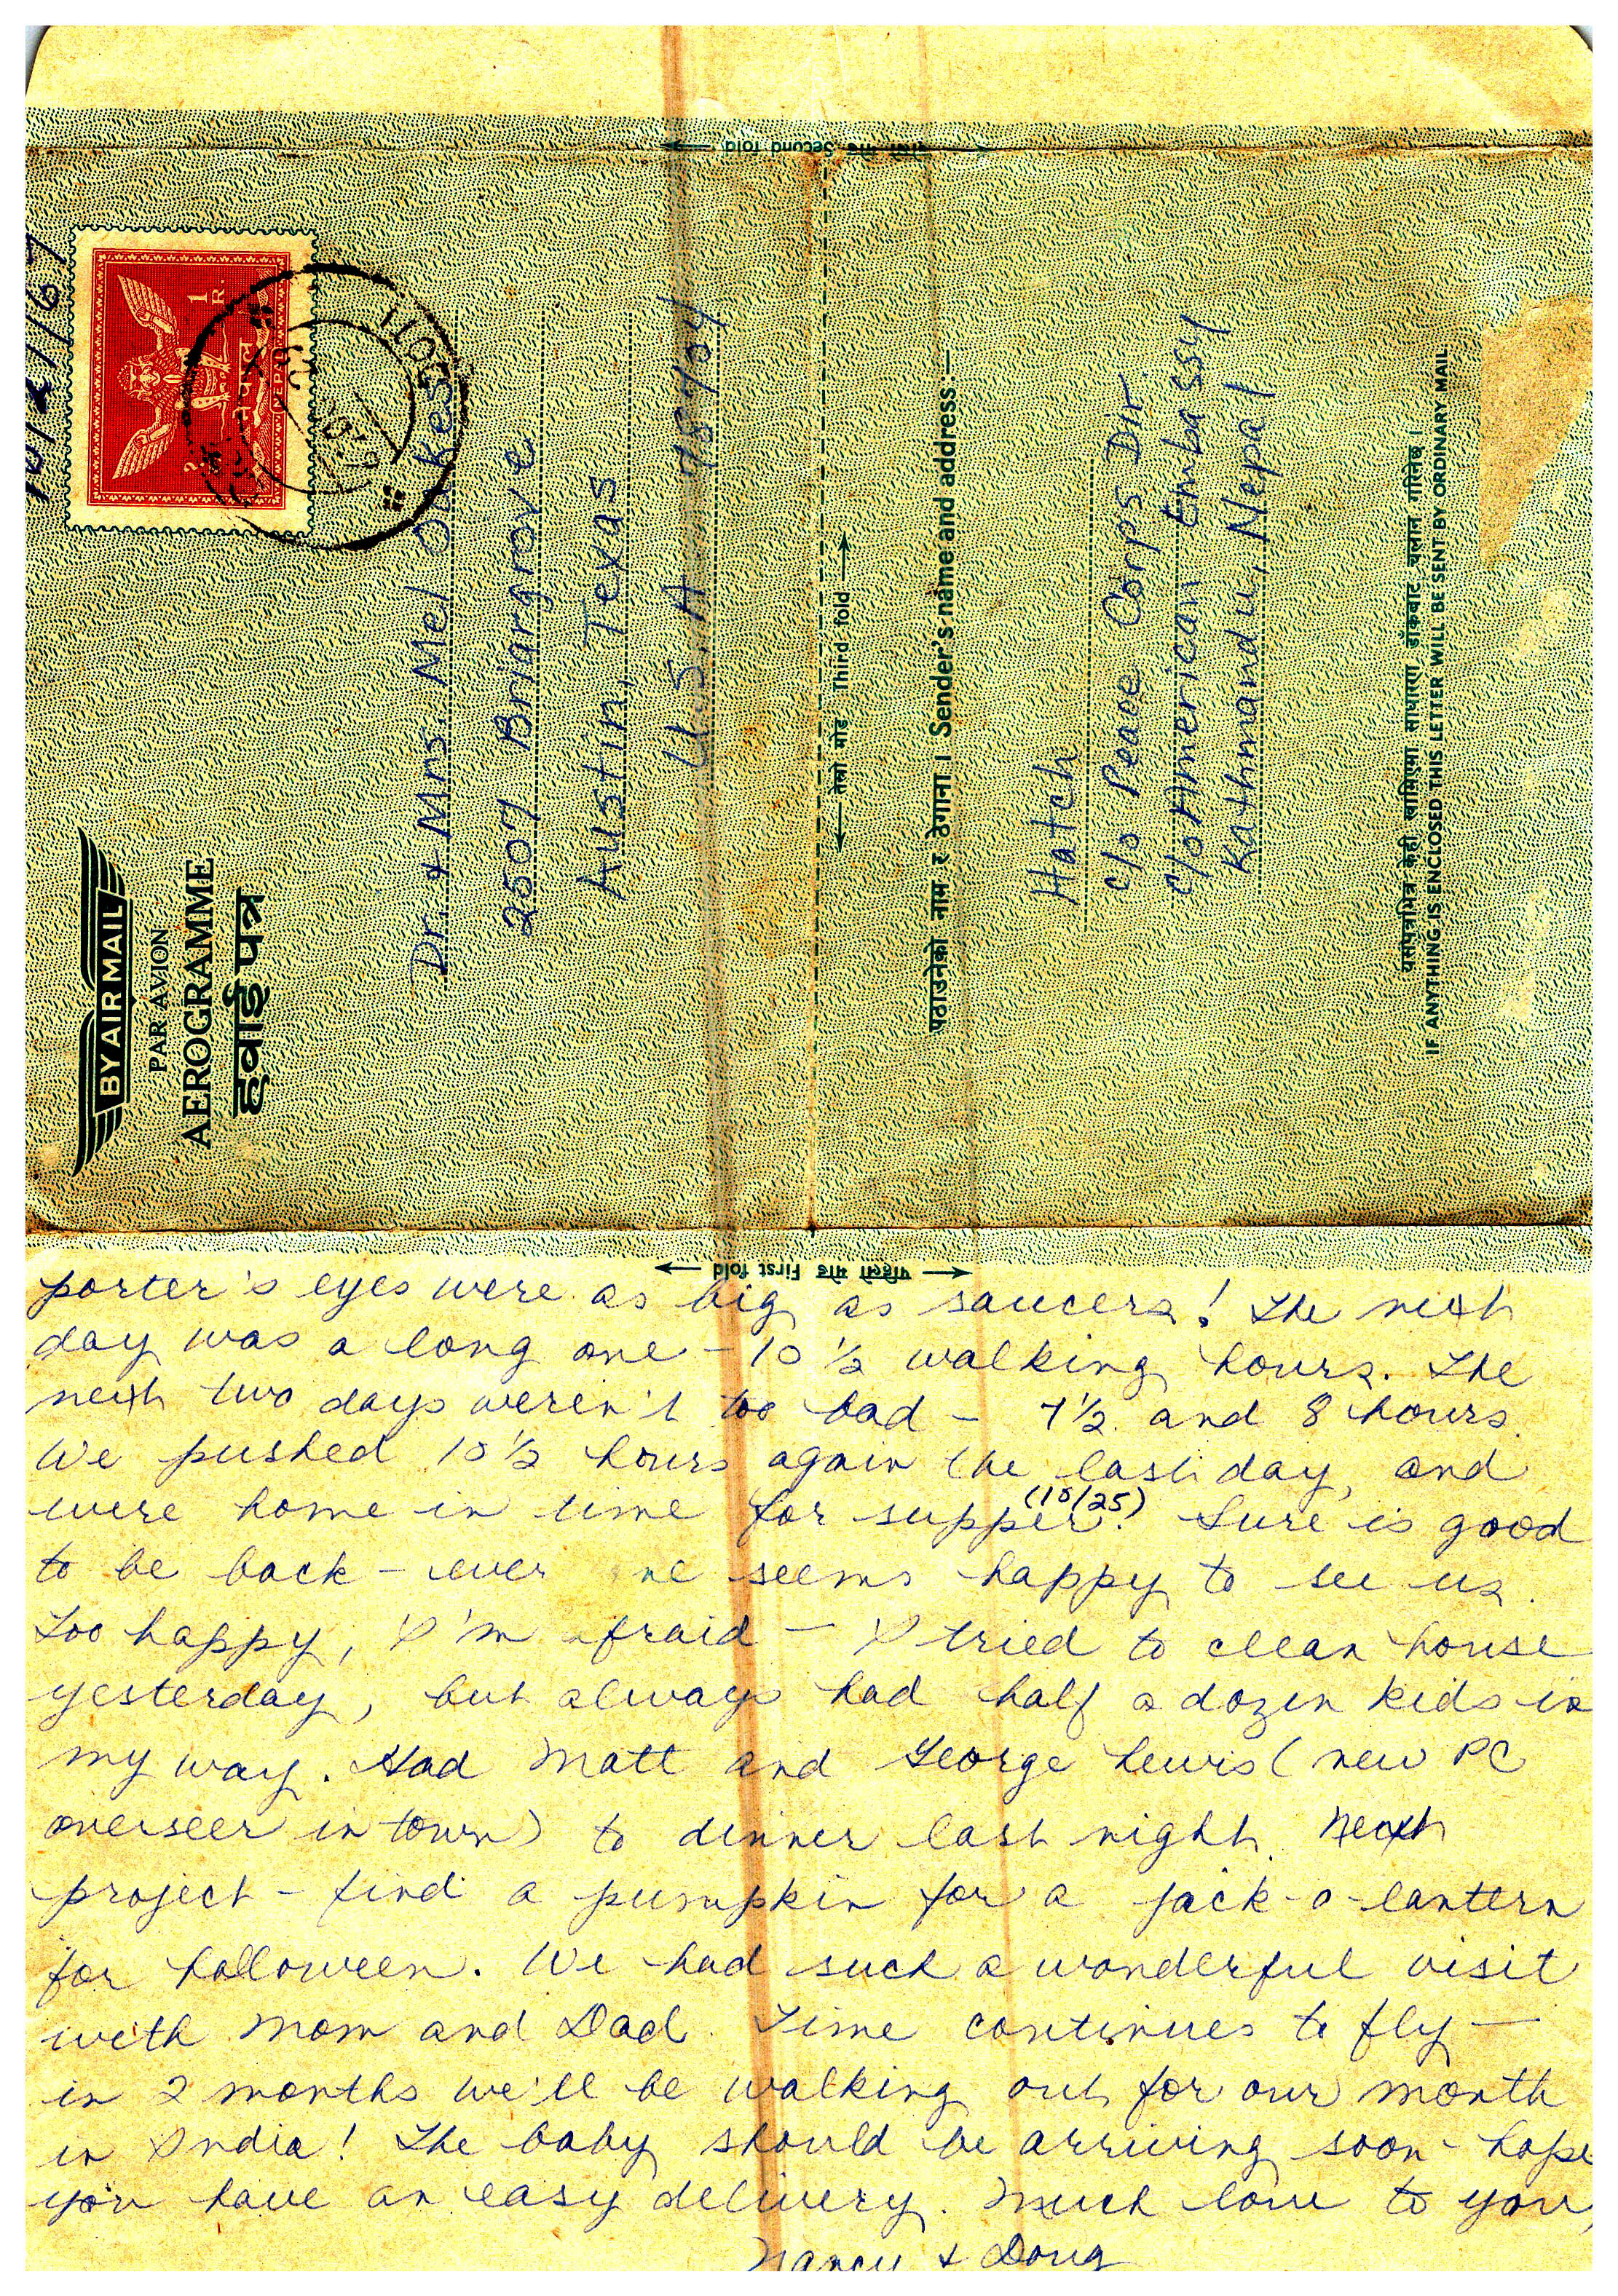 10/27/67
1
R.
नेपाल
NEPAL
DOTI
BY AIR MAIL
PAR AVION
AEROGRAMME
हवाई पत्र
Dr. & Mrs. Mel
2507 Briargrove
Austin, Texas
U.S.A. 78704
Second fold
तेस्रो मोड Third fold
पठाउनेको नाम र ठेगाना । Sender's name and address:—
Hatch
c/o Peace Corps Dir.
c/o American Embassy
Kathmandu, Nepal
यसपत्रभित्र केही खामिएमा साधारण डाँकबाट चलान गरिनेछ ।
IF ANYTHING IS ENCLOSED THIS LETTER WILL BE SENT BY ORDINARY MAIL
पहिलो मोड First fold
porter's eyes were as big as saucers! The next
day was a long one - 10 ½ walking hours. The
next two days weren't too bad - 7½ and 8 hours.
We pushed 10 ½ hours again the last day, and
were home in time for supper (10/25). Sure is good
to be back - ever ne seems happy to see us.
Too happy, I'm afraid - I tried to clean house
yesterday, but always had half a dozen kids in
my way. Had Matt and George Lewis (new PC
overseer in town) to dinner last night. Next
project - find a pumpkin for a jack-o-lantern
for halloween. We had such a wonderful visit
with Mom and Dad. Time continues to fly -
in 2 months we'll be walking out for our month
in India! The baby should be arriving soon - hope
you have an easy delivery. Much love to you,
Nancy & Doug